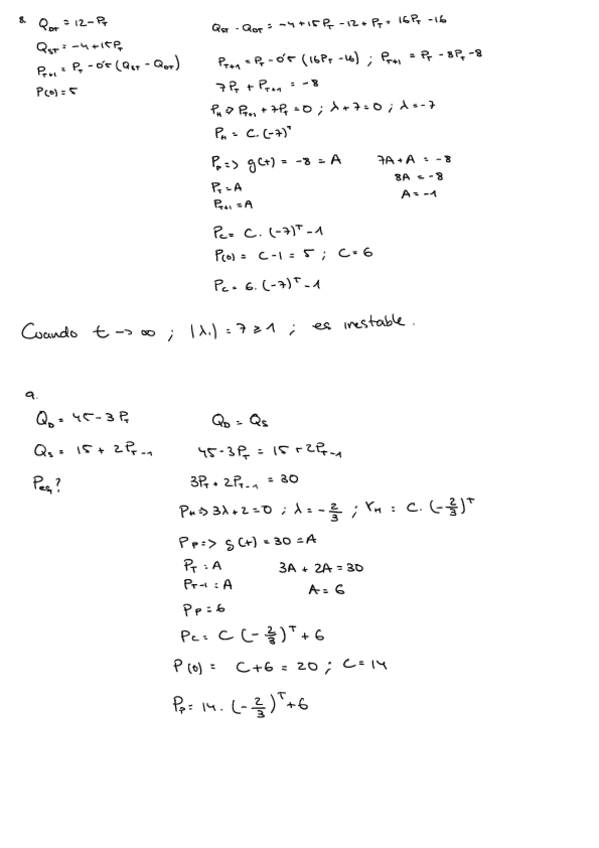 8. Q_DT = 12 - P_T
Q_ST = -4 + 15P_T
P_T+1 = P_T - 0'5 (Q_ST - Q_DT)
P(0) = 5
Q_ST - Q_DT = -4 + 15P_T - 12 + P_T = 16P_T - 16
P_T+1 = P_T - 0'5 (16P_T - 16) ; P_T+1 = P_T - 8P_T - 8
7P_T + P_T+1 = -8
P_H => P_T+1 + 7P_T = 0 ; λ + 7 = 0 ; λ = -7
P_H = C. (-7)^T
P_P => g(t) = -8 = A
P_T = A
P_T+1 = A
7A + A = -8
8A = -8
A = -1
P_C = C. (-7)^T - 1
P(0) = C - 1 = 5 ; C = 6
P_C = 6. (-7)^T - 1
Cuando t -> ∞ ; |λ_1| = 7 ≥ 1 ; es inestable.
9.
Q_D = 45 - 3P_T
Q_S = 15 + 2P_T-1
P_eq?
Q_D = Q_S
45 - 3P_T = 15 + 2P_T-1
3P_T + 2P_T-1 = 30
P_H => 3λ + 2 = 0 ; λ = -2/3 ; Y_H = C. (-2/3)^T
P_P => g(t) = 30 = A
P_T = A
P_T-1 = A
P_P = 6
3A + 2A = 30
A = 6
P_C = C (-2/3)^T + 6
P(0) = C + 6 = 20 ; C = 14
P_P = 14. (-2/3)^T + 6